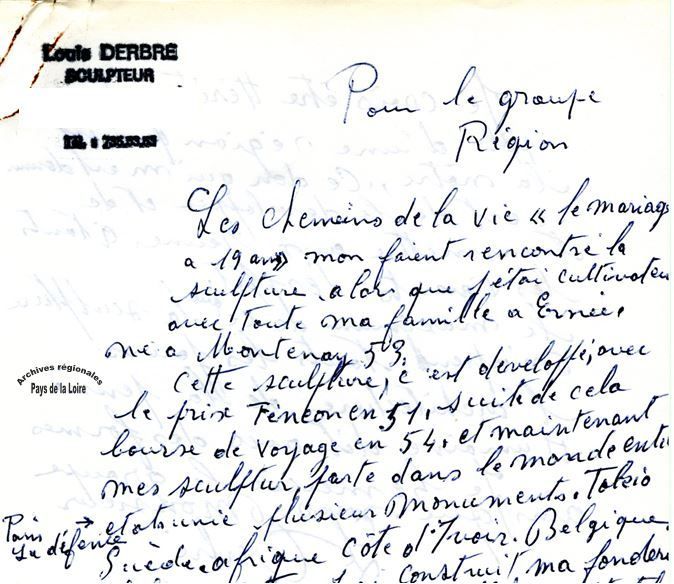 Louis DERBRE
SCULPTEUR
TEL : 735.83.83
Pour le groupe
Région
Les chemeins de la vie « le mariage
a 19 ans» mon faient rencontré la
sculpture alors que j'étai cultivateu
avec toute ma famille a Ernée.
né a Montenay 53.
Cette sculpture, c'est developpé, avec
le prix Fénéon en 51, suite de cela
bourse de voyage en 54. et maintenant
mes sculptur parte dans le monde enti
Paris → etats unie plusieur Monuments. Tokio
La défence Suède. afrique côte d'Ivoir. Belgique
construit ma fonderi
Archives régionales
Pays de la Loire